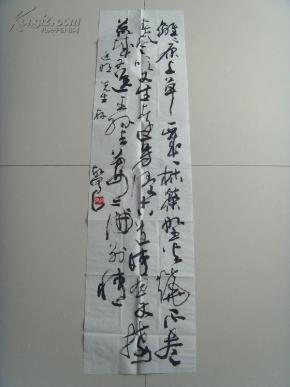 離原上草一歲一枯榮野火燒不盡
春風吹又生遠芳侵古道晴翠接
荒城又送王孫去萋〻滿別情
先生存